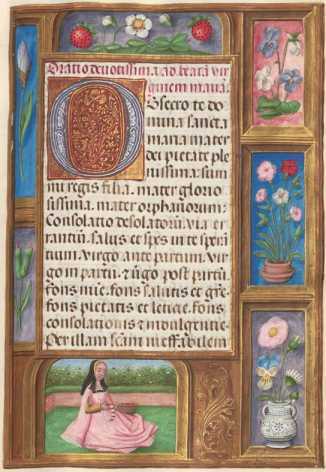 Oratio deuotissima ad beatā vir
ginem maria
Obsecro te do
mina sancta
maria mater
dei pietate ple
nissima: sum
mi regis filia. mater glorio
sissima. mater orphanorum:
Consolatio desolatorū. via er
rantiū. salus et spes in te sperā
tium. virgo ante partum. virgo
in partū. ⁊ v̄go post partū.
fons mīe. fons salutis et grē.
fons pietatis et leticie. fons
consolationis ⁊ indulgentie.
Per illam scām ineffabilem